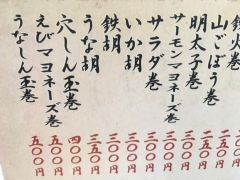 鉄火巻
山ごぼう巻 二五〇円
明太子巻 二五〇円
サーモンマヨネーズ巻 三〇〇円
サラダ巻 三〇〇円
いか胡 三〇〇円
鉄胡 三〇〇円
うな胡 三五〇円
穴しん玉巻 四〇〇円
えびマヨネーズ巻 五〇〇円
うなしん玉巻 五〇〇円